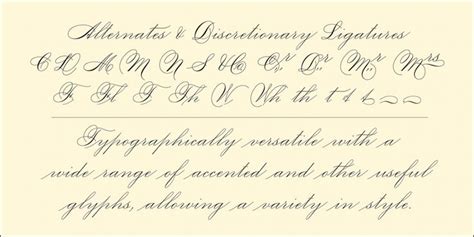 Alternates & Discretionary Ligatures
CD M M N S & Co Cr Dr Mr Mrs
F Fl Th W Wh th t t
Typographically versatile with a
wide range of accented and other useful
glyphs, allowing a variety in style.